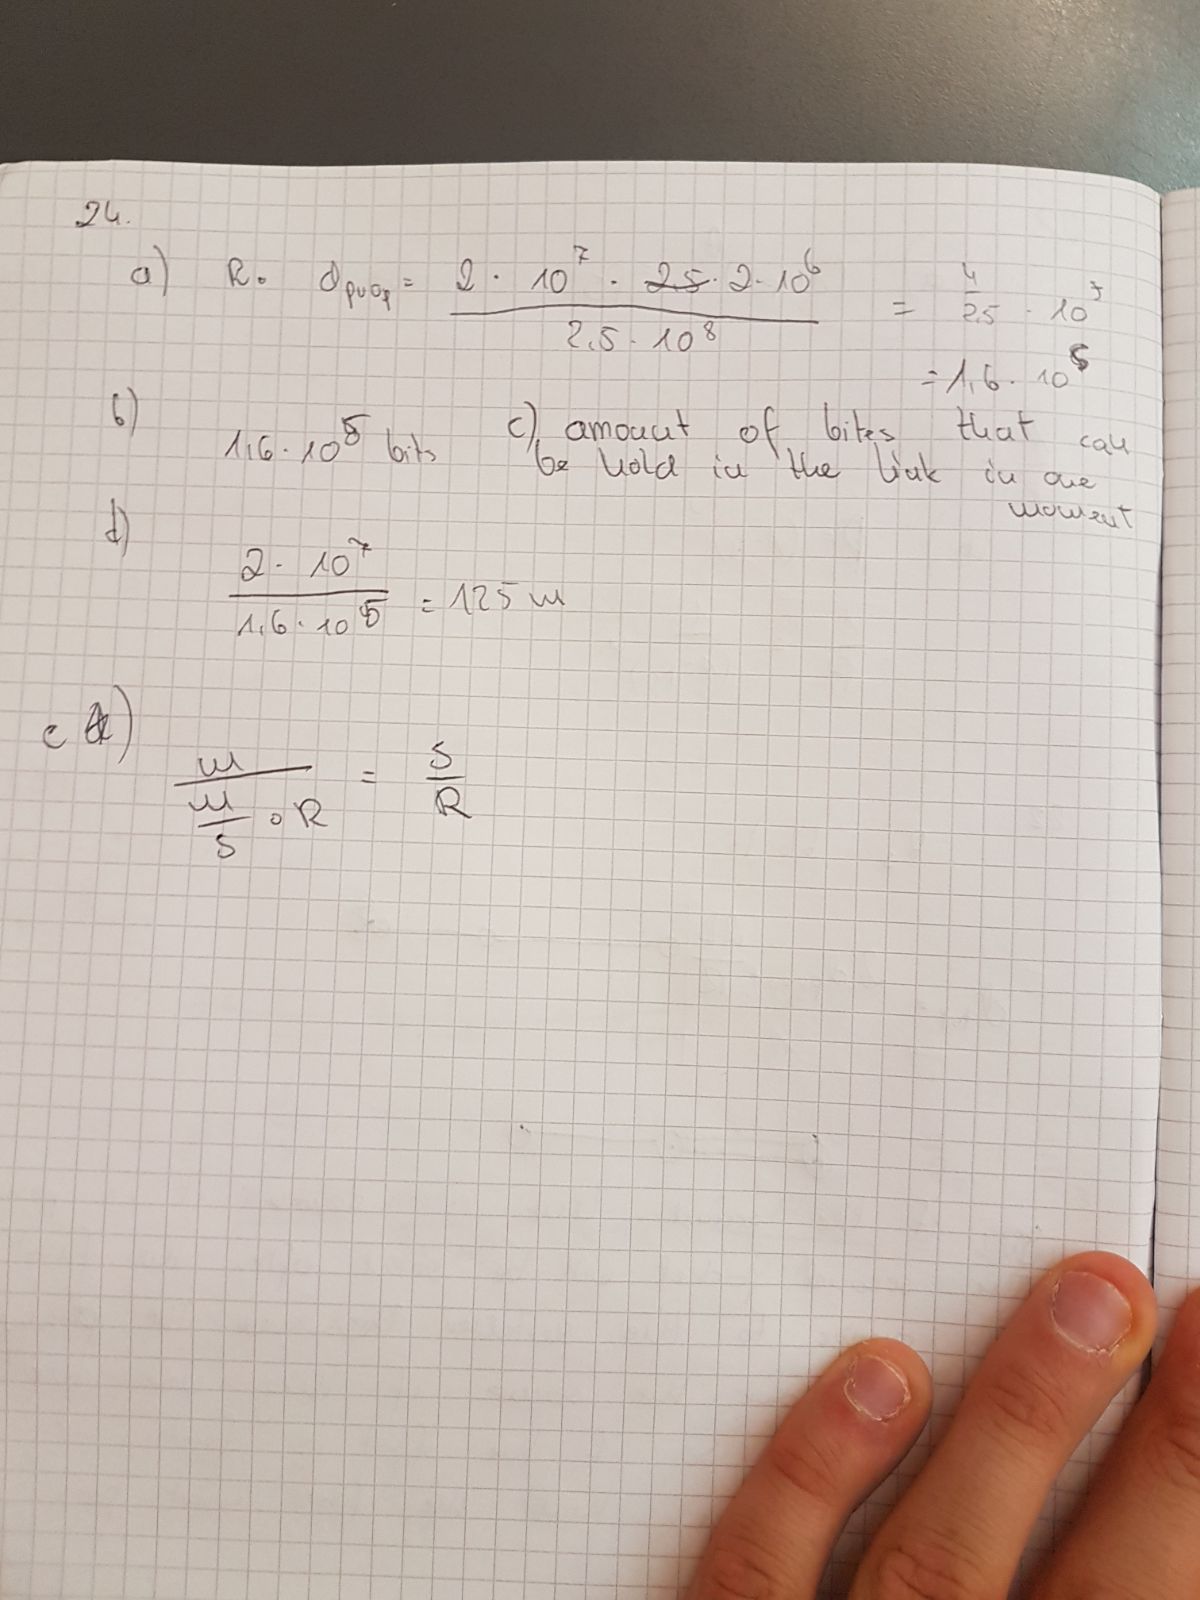 24.
a) R · d prop = 2 · 10^7 · 2.5 · 2 · 10^6 / 2.5 · 10^8 = 4/2.5 · 10^5
= 1,6 · 10^5
b) 1,6 · 10^5 bits
c) amount of bites that can
be hold in the link in one
moment
d) 2 · 10^7 / 1,6 · 10^5 = 125 m
e) m / (m/s · R) = s/R